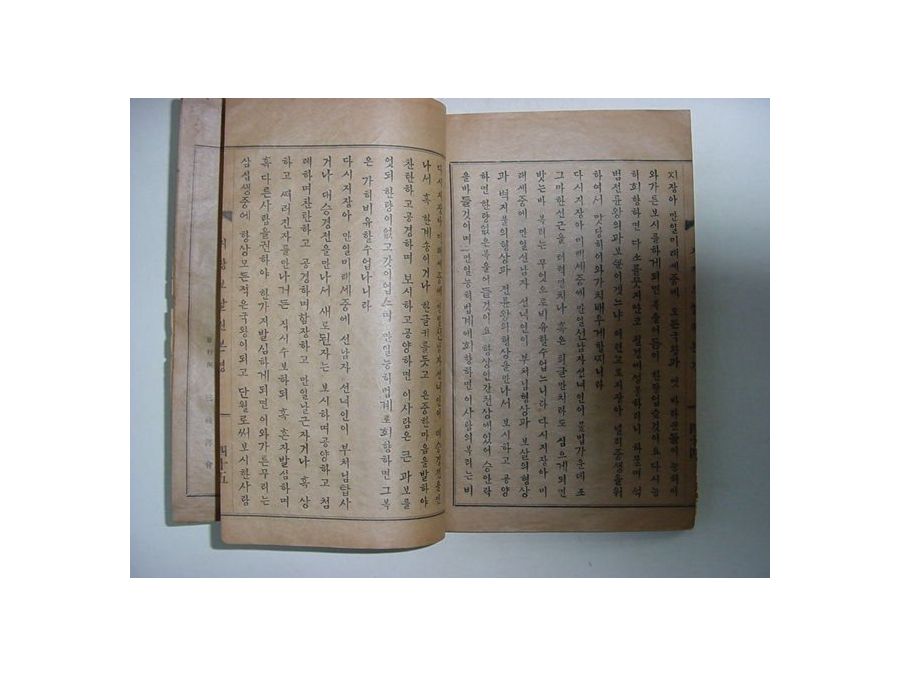 지장아 만일미래세중에 모든국왕과 및 바라문들이 능히이
와가든보시를하게되면 복을어듬이 한량업슬것이요 다시능
히회향하면 다소를뭇지안코 필경에성불하리니 하물며 석
범전륜왕의과보쏜이겟느냐 이런고로지장아 널리중생을권
하여서 맛당히이와가치배우게할찌니라
다시지장아 미래세중에 만일선남자선녀인이 불법가운데 조
그마한선근을 터럭만치나 혹은 틔글만치라도 심으게되면
밧는바 복리는 무엇으로비유할수업느니라 다시지장아 미
래세중에 만일선남자 선녀인이 부처님형상과 보살의형상
과 벽지불의형상과 전륜왕의형상을만나서 보시하고 공양
하면 한량없은복을어들것이요 항상인간천상에있어 승안락
을바들것이며 만일능히법계에회향하면 이사람의복리는비
다시지장아 미래세중에 만일선남자선녀인이 대승경전을만
나서 혹 한게송이거나 한글귀를듯고 은중한마음을발하야
찬란하고공경하며 보시하고공양하면 이사람은 큰 과보를
엇되 한량이없고갓이업스며 만일능히법계로회향하면 그복
은 가히비유할수업나니라
다시지장아 만일미래세중에 선남자 선녀인이 부처님탑사
거나 대승경전을만나서 새로된자는 보시하며공양하고 첨
례하며찬란하고 공경하며합장하고 만일날근자거나 혹 상
하고 떠러진자를만나거든 직시수보하되 혹 혼자발심하며
혹 다른사람을권하야 한가지발심하게되면 이와가튼무리는
삼십생중에 항상모든적은국왕이되고 단월로써보시한사람
四十五